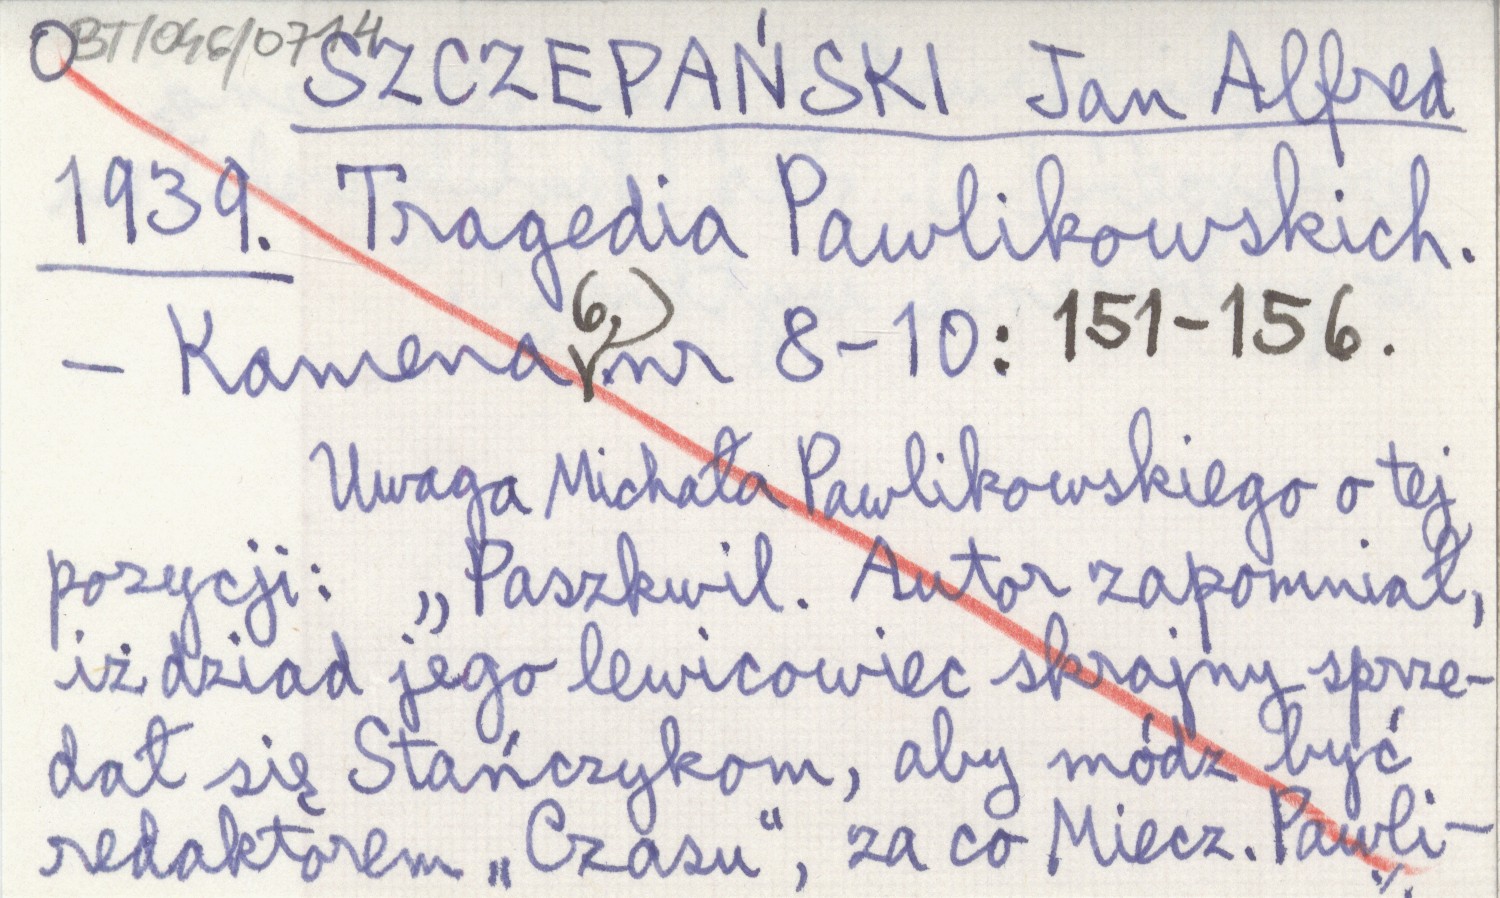 O BT/046/0714
SZCZEPAŃSKI Jan Alfred
1939. Tragedia Pawlikowskich.
– Kamena 6,) nr 8–10: 151–156.
Uwaga Michała Pawlikowskiego o tej
pozycji: „Paszkwil. Autor zapomniał,
iż dziad jego lewicowiec skrajny sprze-
dał się Stańczykom, aby módz być
redaktorem „Czasu“, za co Miecz. Pawli-
./.